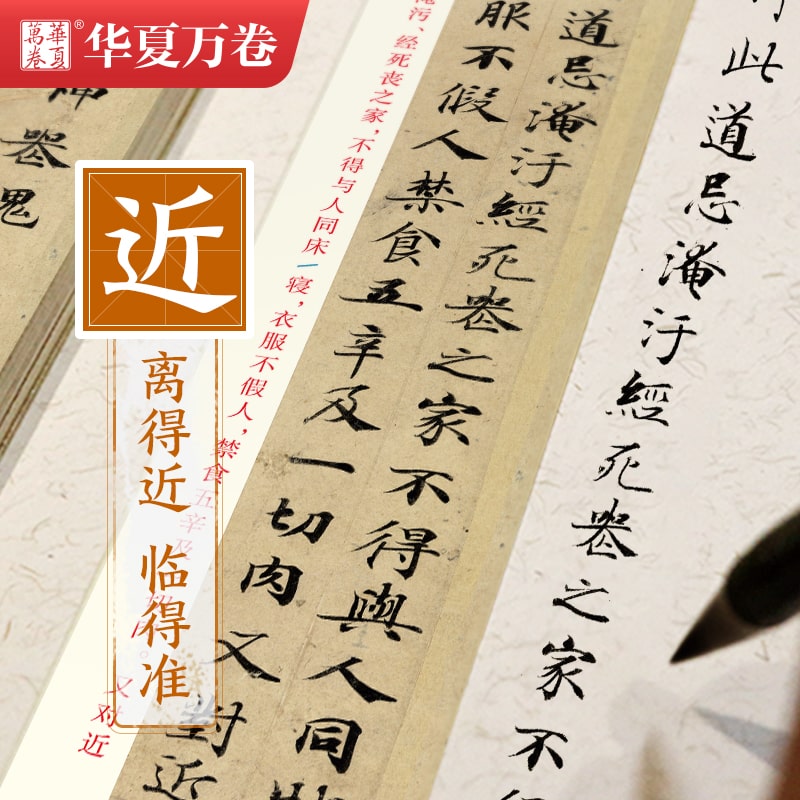 華夏
萬卷
®
华夏万卷
此道忌淹汙經死喪之家不
道忌淹汙經死喪之家不得與人同
服不假人禁食五辛及一切肉又對近
污、经死丧之家，不得与人同床
寝，衣服不假人，禁食五辛及
又对近
器鬼
近
离得近 临得准